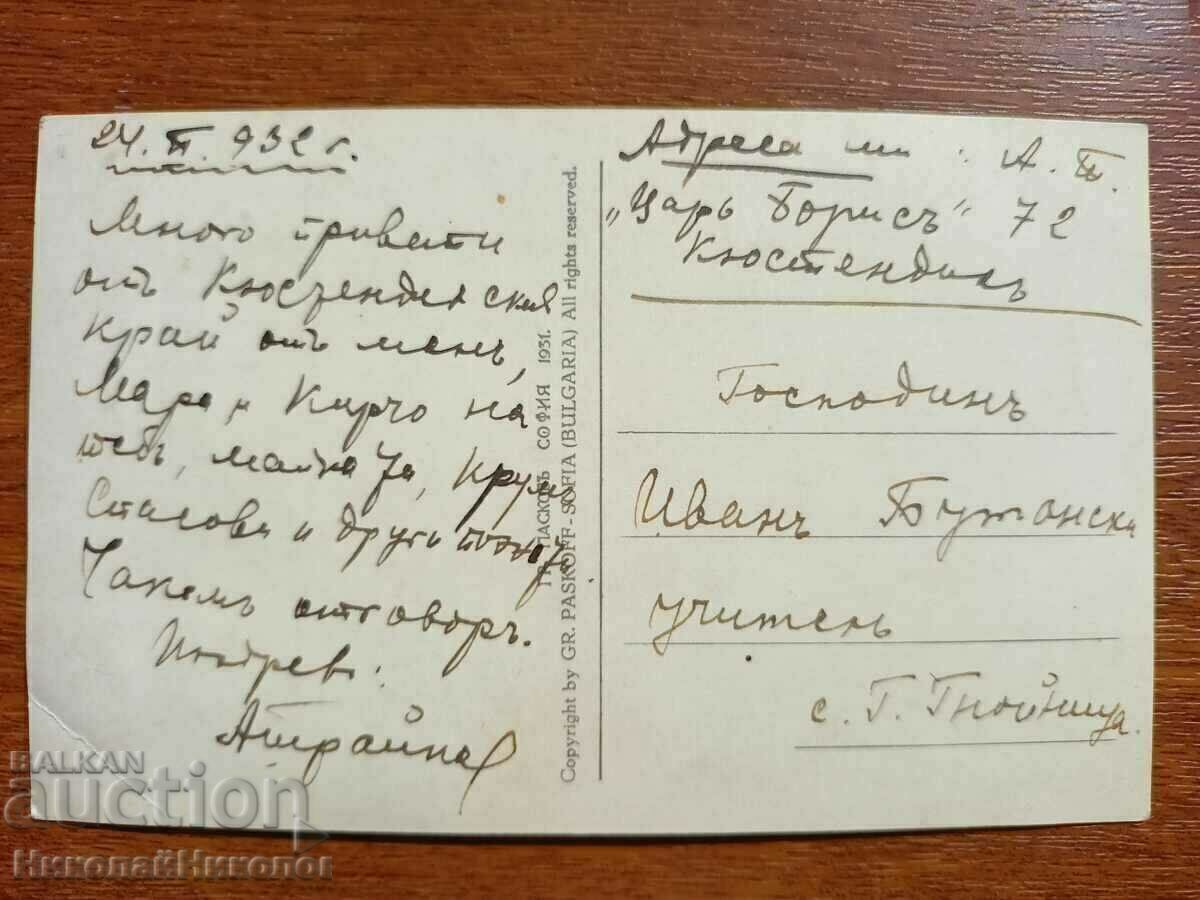 24. II. 932 г.
Много привети
отъ Кюстендилския
край отъ менъ,
Мара и Кирчо на
тебъ, майка ти, Крум
и други
Чакамъ отговоръ.
Поздрав:
А Трайков
Адреса ми: А. Т.
„Царь Борисъ" 72
Кюстендилъ
Господинъ
Иванъ Бутански
учитель
с. Г. Гнойница.
ГР. ПАСКОВЪ СОФИЯ 1931.
Copyright by GR. PASKOFF - SOFIA (BULGARIA) All rights reserved.
BALKAN
auction
НиколайНиколов